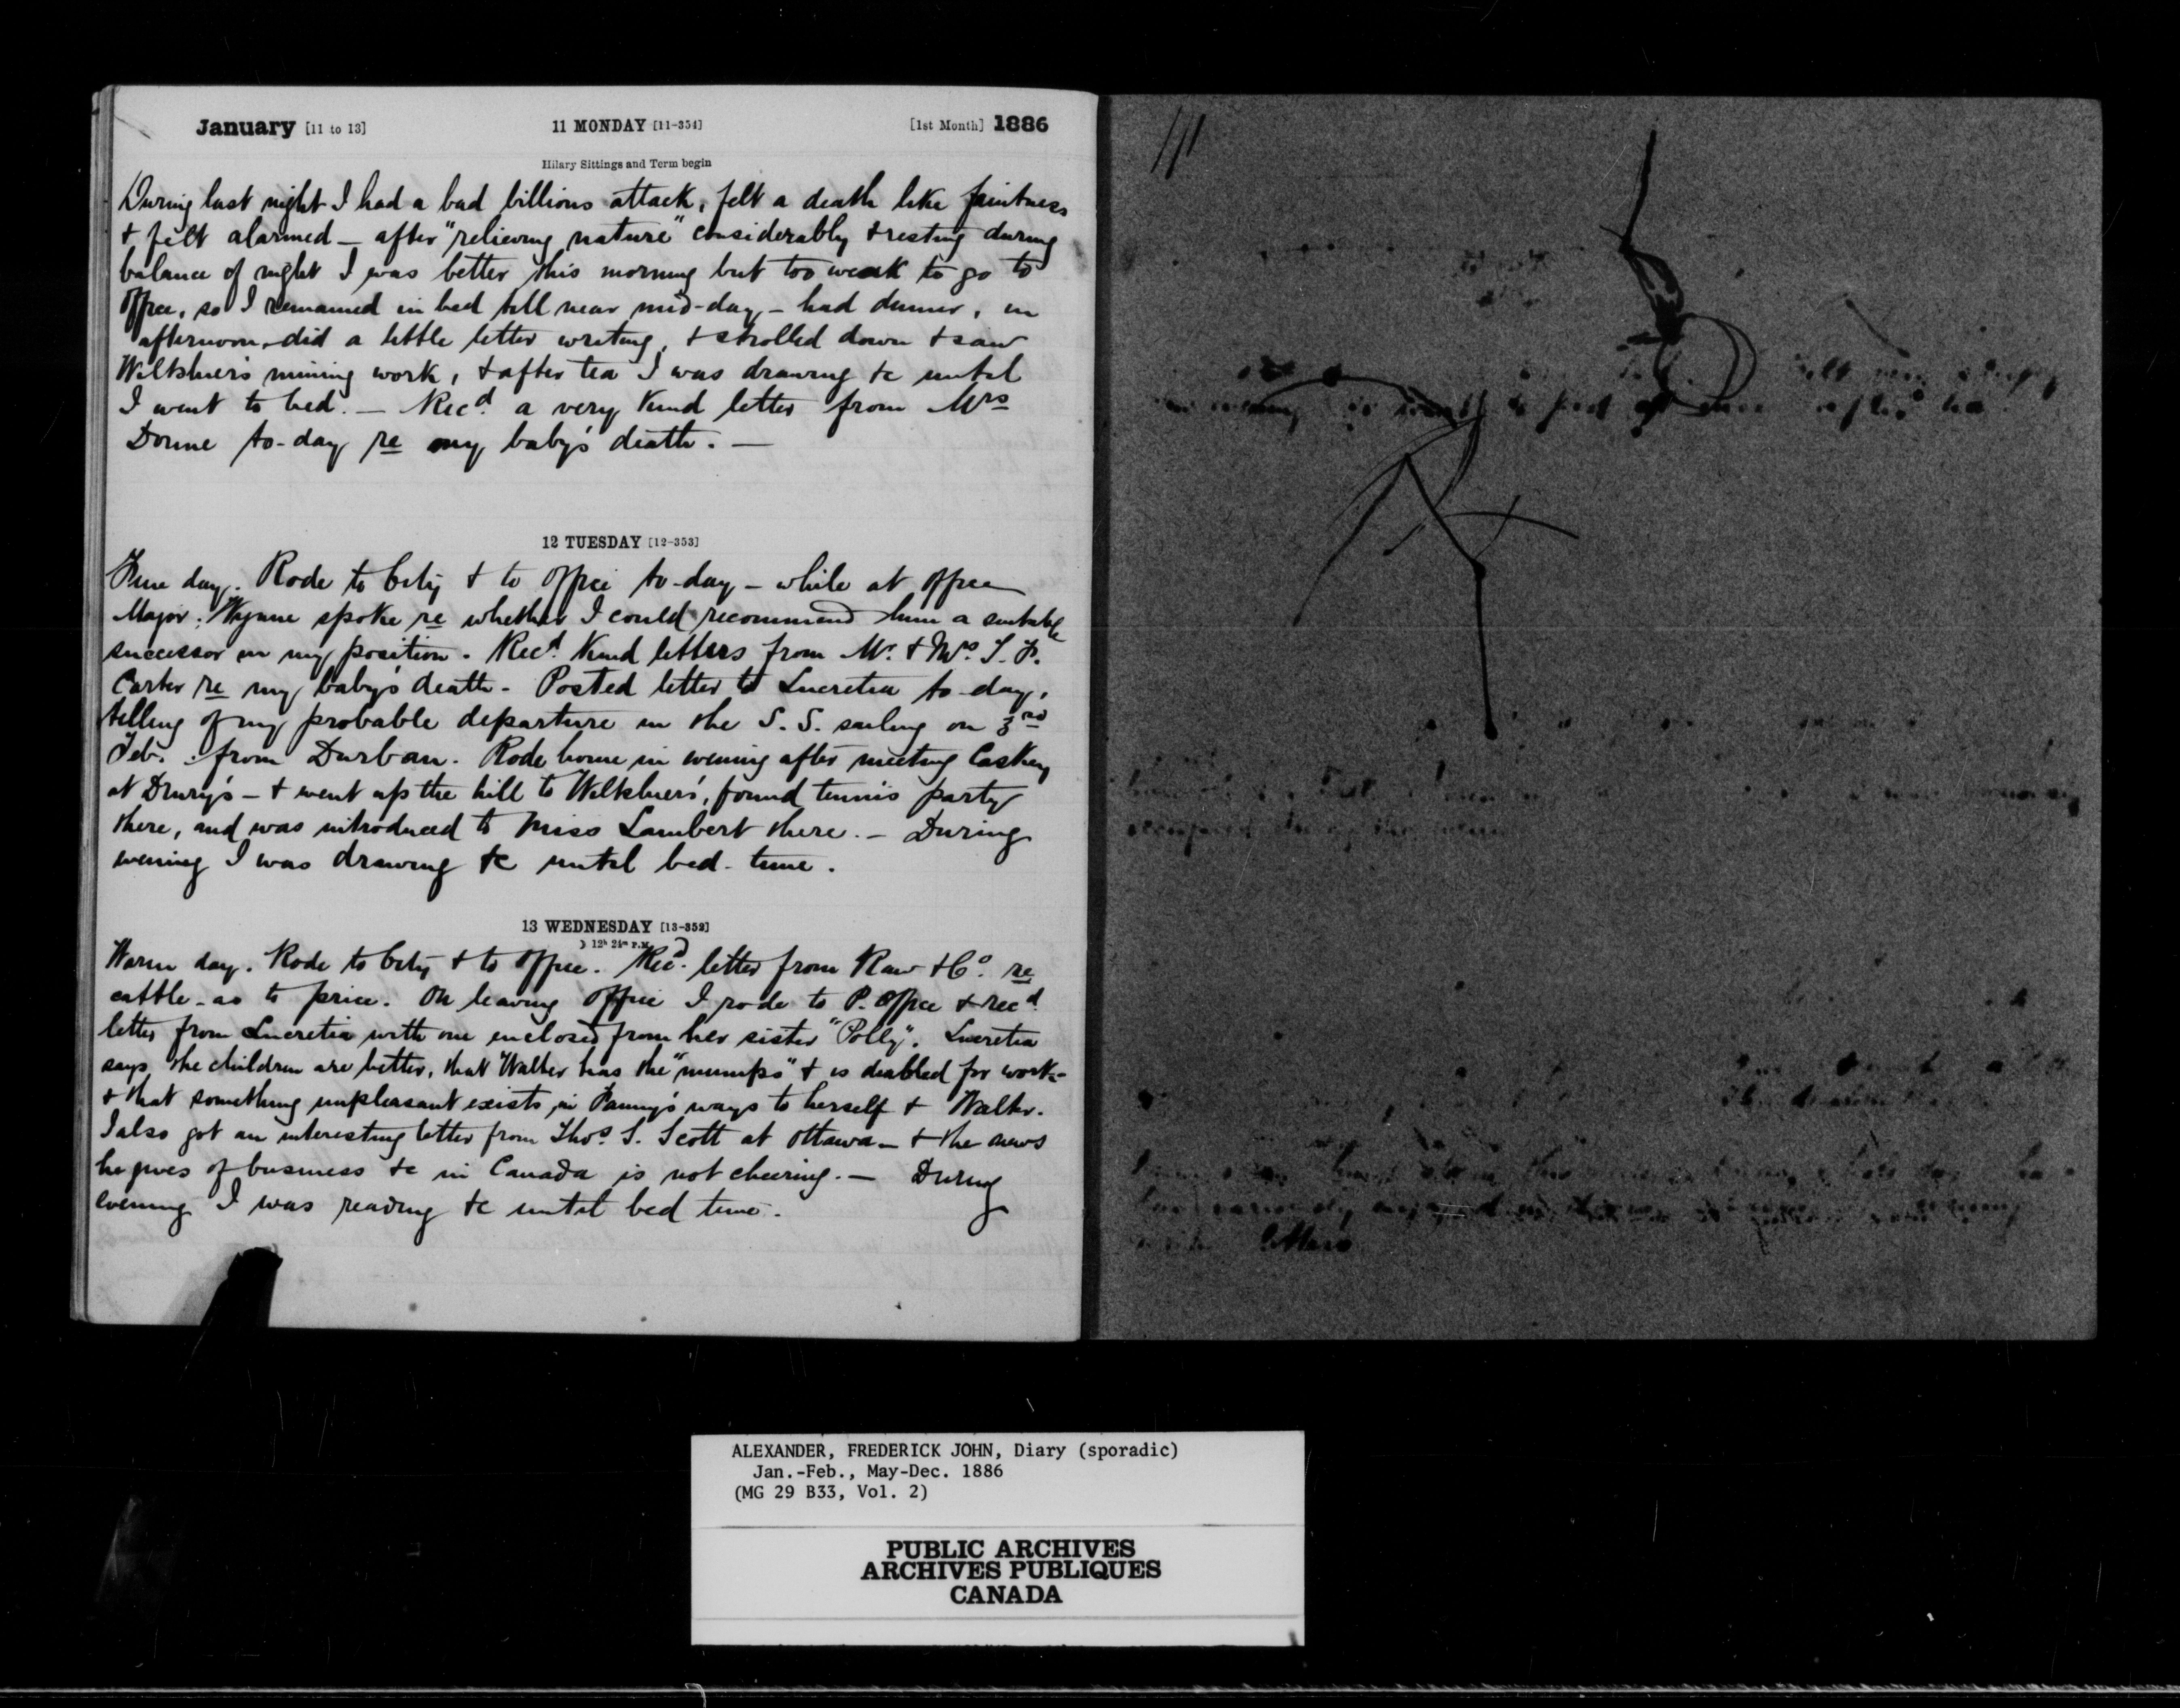 January [11 to 13] 11 MONDAY [11-354] [1st Month] 1886
Hilary Sittings and Term begin
During last night I had a bad billious attack, felt a death like faintness
& felt alarmed — after "relieving nature" considerably & resting during
balance of night I was better this morning but too weak to go to
office, so I remained in bed till near mid-day, — had dinner, in
afternoon did a little letter writing, & strolled down & saw
Wiltshier's mining work, & after tea I was drawing &c until
I went to bed. — Recd. a very kind letter from Mrs
Donne to-day re my baby's death. —
12 TUESDAY [12-353]
Fine day. Rode to City & to office to-day — while at office
Major Wynne spoke re whether I could recommend him a suitable
successor in my position. Recd. kind letters from Mr. & Mrs. T. F.
Carter re my baby's death — Posted letter to Lucretia to-day,
telling of my probable departure in the S. S. sailing on 3rd
Feb. from Durban. Rode home in evening after meeting Caskey
at Drury's — & went up the hill to Wiltshier's, found tennis party
there, and was introduced to Miss Lambert there. — During
evening I was drawing &c until bed-time.
13 WEDNESDAY [13-352]
12h 24m P.M.
Warm day. Rode to City & to office. Recd. letter from Raw & Co. re
cattle — as to price. On leaving office I rode to P. Office & recd.
letter from Lucretia with one inclosed from her sister "Polly". Lucretia
says the children are better, that Walter has the "mumps" & is disabled for work —
& that something unpleasant exists in Fanny's ways to herself & Walter.
I also got an interesting letter from Thos. S. Scott at Ottawa — & the news
he gives of business &c in Canada is not cheering. — During
evening I was reading &c until bed time.
letters
ALEXANDER, FREDERICK JOHN, Diary (sporadic)
Jan.-Feb., May-Dec. 1886
(MG 29 B33, Vol. 2)
PUBLIC ARCHIVES
ARCHIVES PUBLIQUES
CANADA